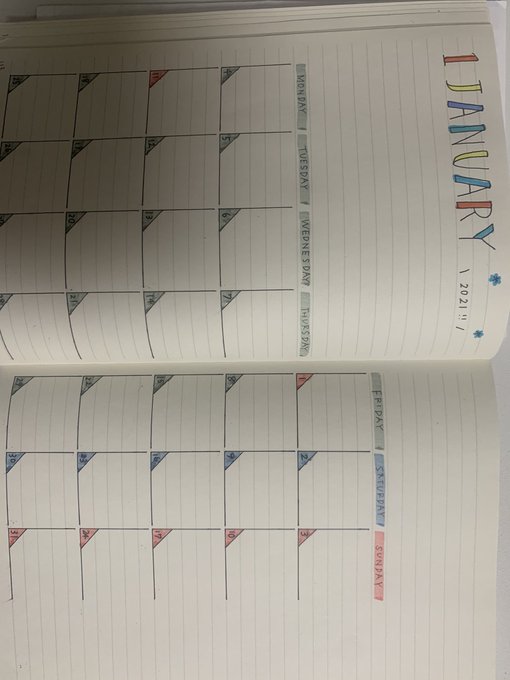 1 JANUARY
\ 2021!! /
MONDAY TUESDAY WEDNESDAY THURSDAY
4 5 6 7
11 12 13 14
18 19 20 21
25 26
FRIDAY SATURDAY SUNDAY
1 2 3
8 9 10
15 16 17
22 23 24
29 30 31